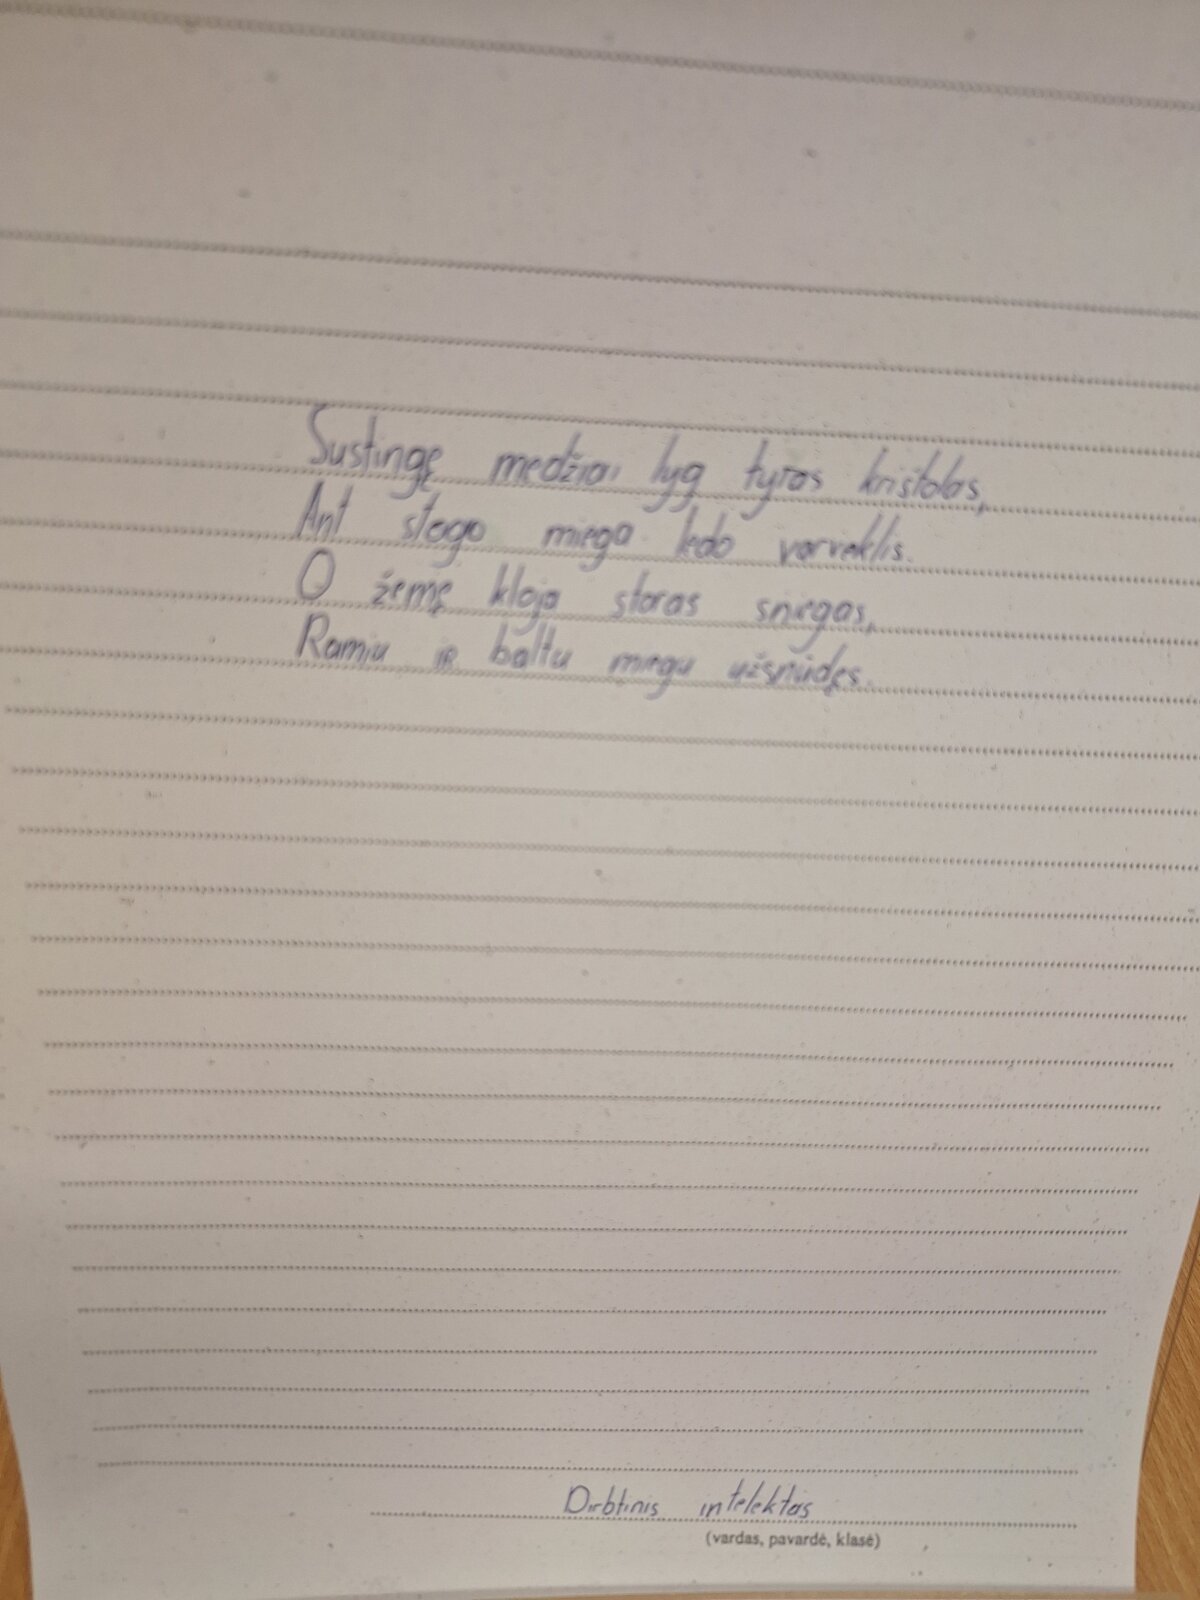 Sustingę medžiai lyg tyras krištolas,
Ant stogo miega ledo varveklis.
O žemę kloja storas sniegas,
Ramiu ir baltu miegu užsnūdęs.
Dirbtinis intelektas
(vardas, pavardė, klasė)